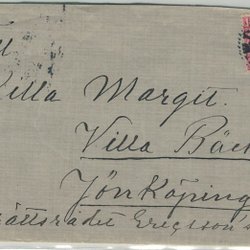 Villa Margit.
Villa Bäck
Jönköping
Ericsson